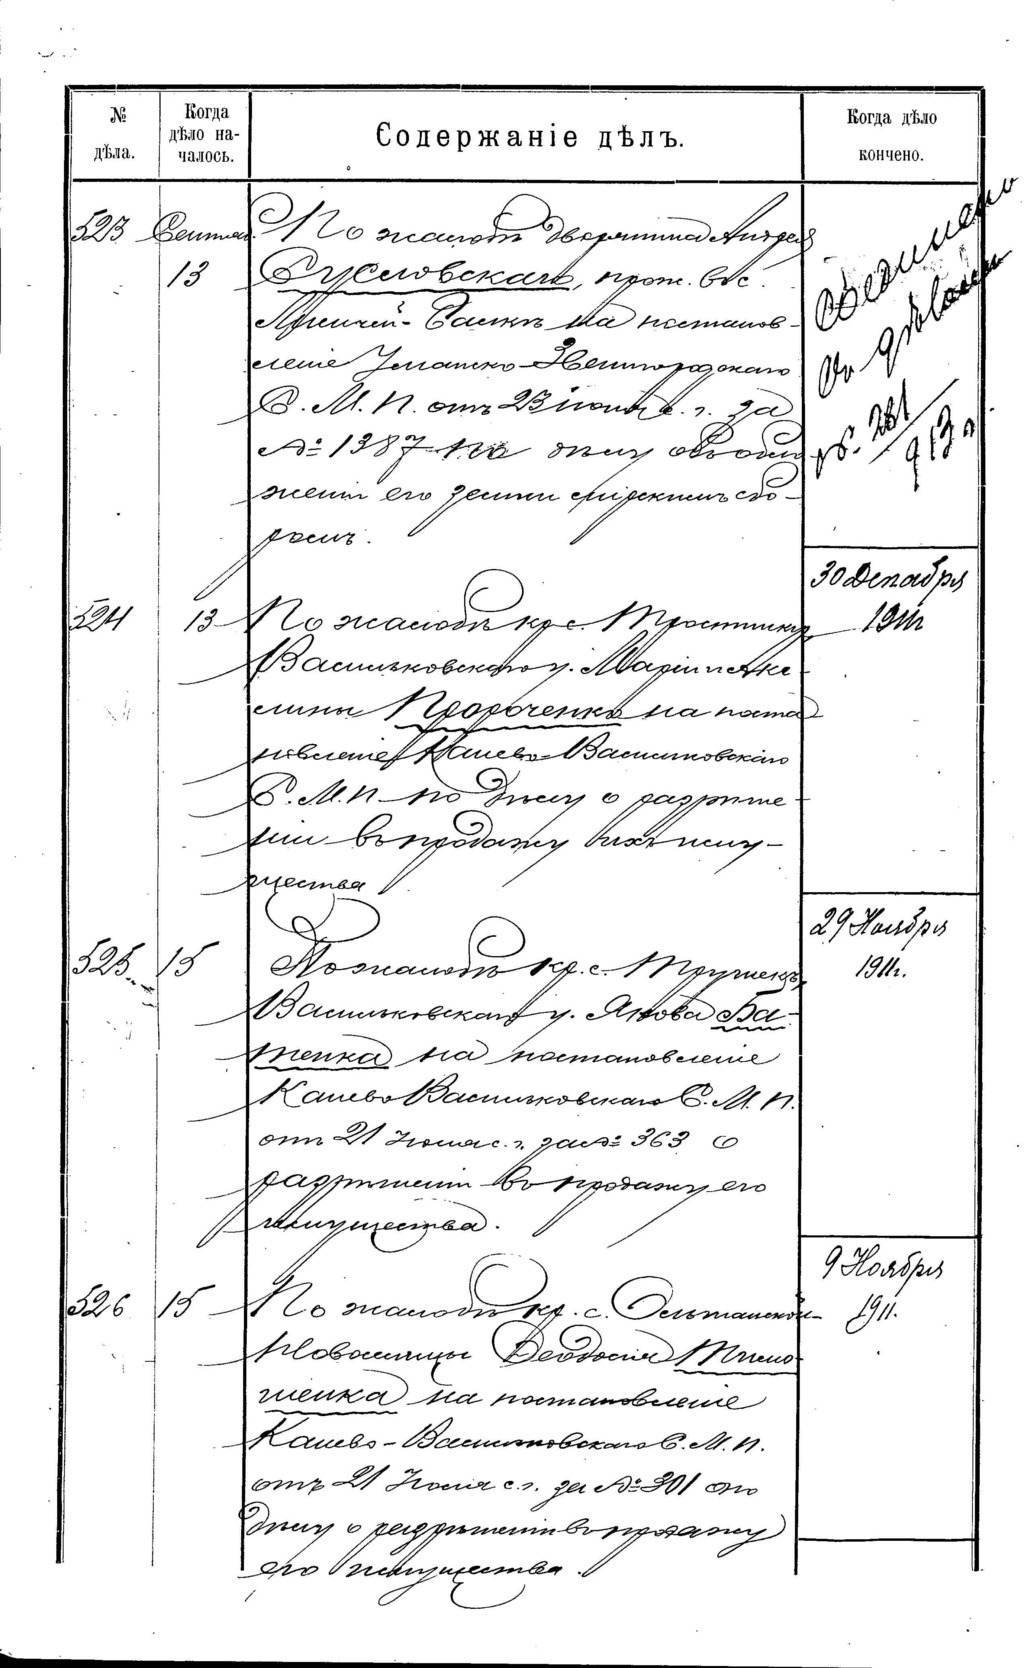 № дѣла.
Когда дѣло началось.
Содержаніе дѣлъ.
Когда дѣло кончено.
523
13
По жалобѣ дворянина Андрея
прож. въ с.
на постанов-
леніе Уманско-Звенигородскаго
С. М. П. отъ 23 іюня с. г. за
№ 1387 по дѣлу объ обло-
женіи его земли мірскимъ сбо-
ромъ.
524
13
По жалобѣ кр. с.
Васильковскаго у. Маріи
Пророченко на поста
новленіе Каневo-Васильковскаго
С. М. П. по дѣлу о разрѣше
ніи въ продажу ихъ иму-
щества
30 Декабря
1911г
525
15
По жалобѣ кр. с.
Васильковскаго у. Якова Ба-
тенка на постановленіе
Канево Васильковскаго С. М. П.
отъ 21 Іюля с. г. за № 363 о
разрѣшеніи въ продажу его
имущества.
29 Ноября
1911г.
526
15
По жалобѣ кр. с. Ольшанской-
Новоселицы Ѳеодосія Тимо
шенка на постановленіе
Канево-Васильковскаго С. М. П.
отъ 21 Іюля с. г. за № 301 по
дѣлу о разрѣшеніи въ продажу
его имущества.
9 Ноября
1911.